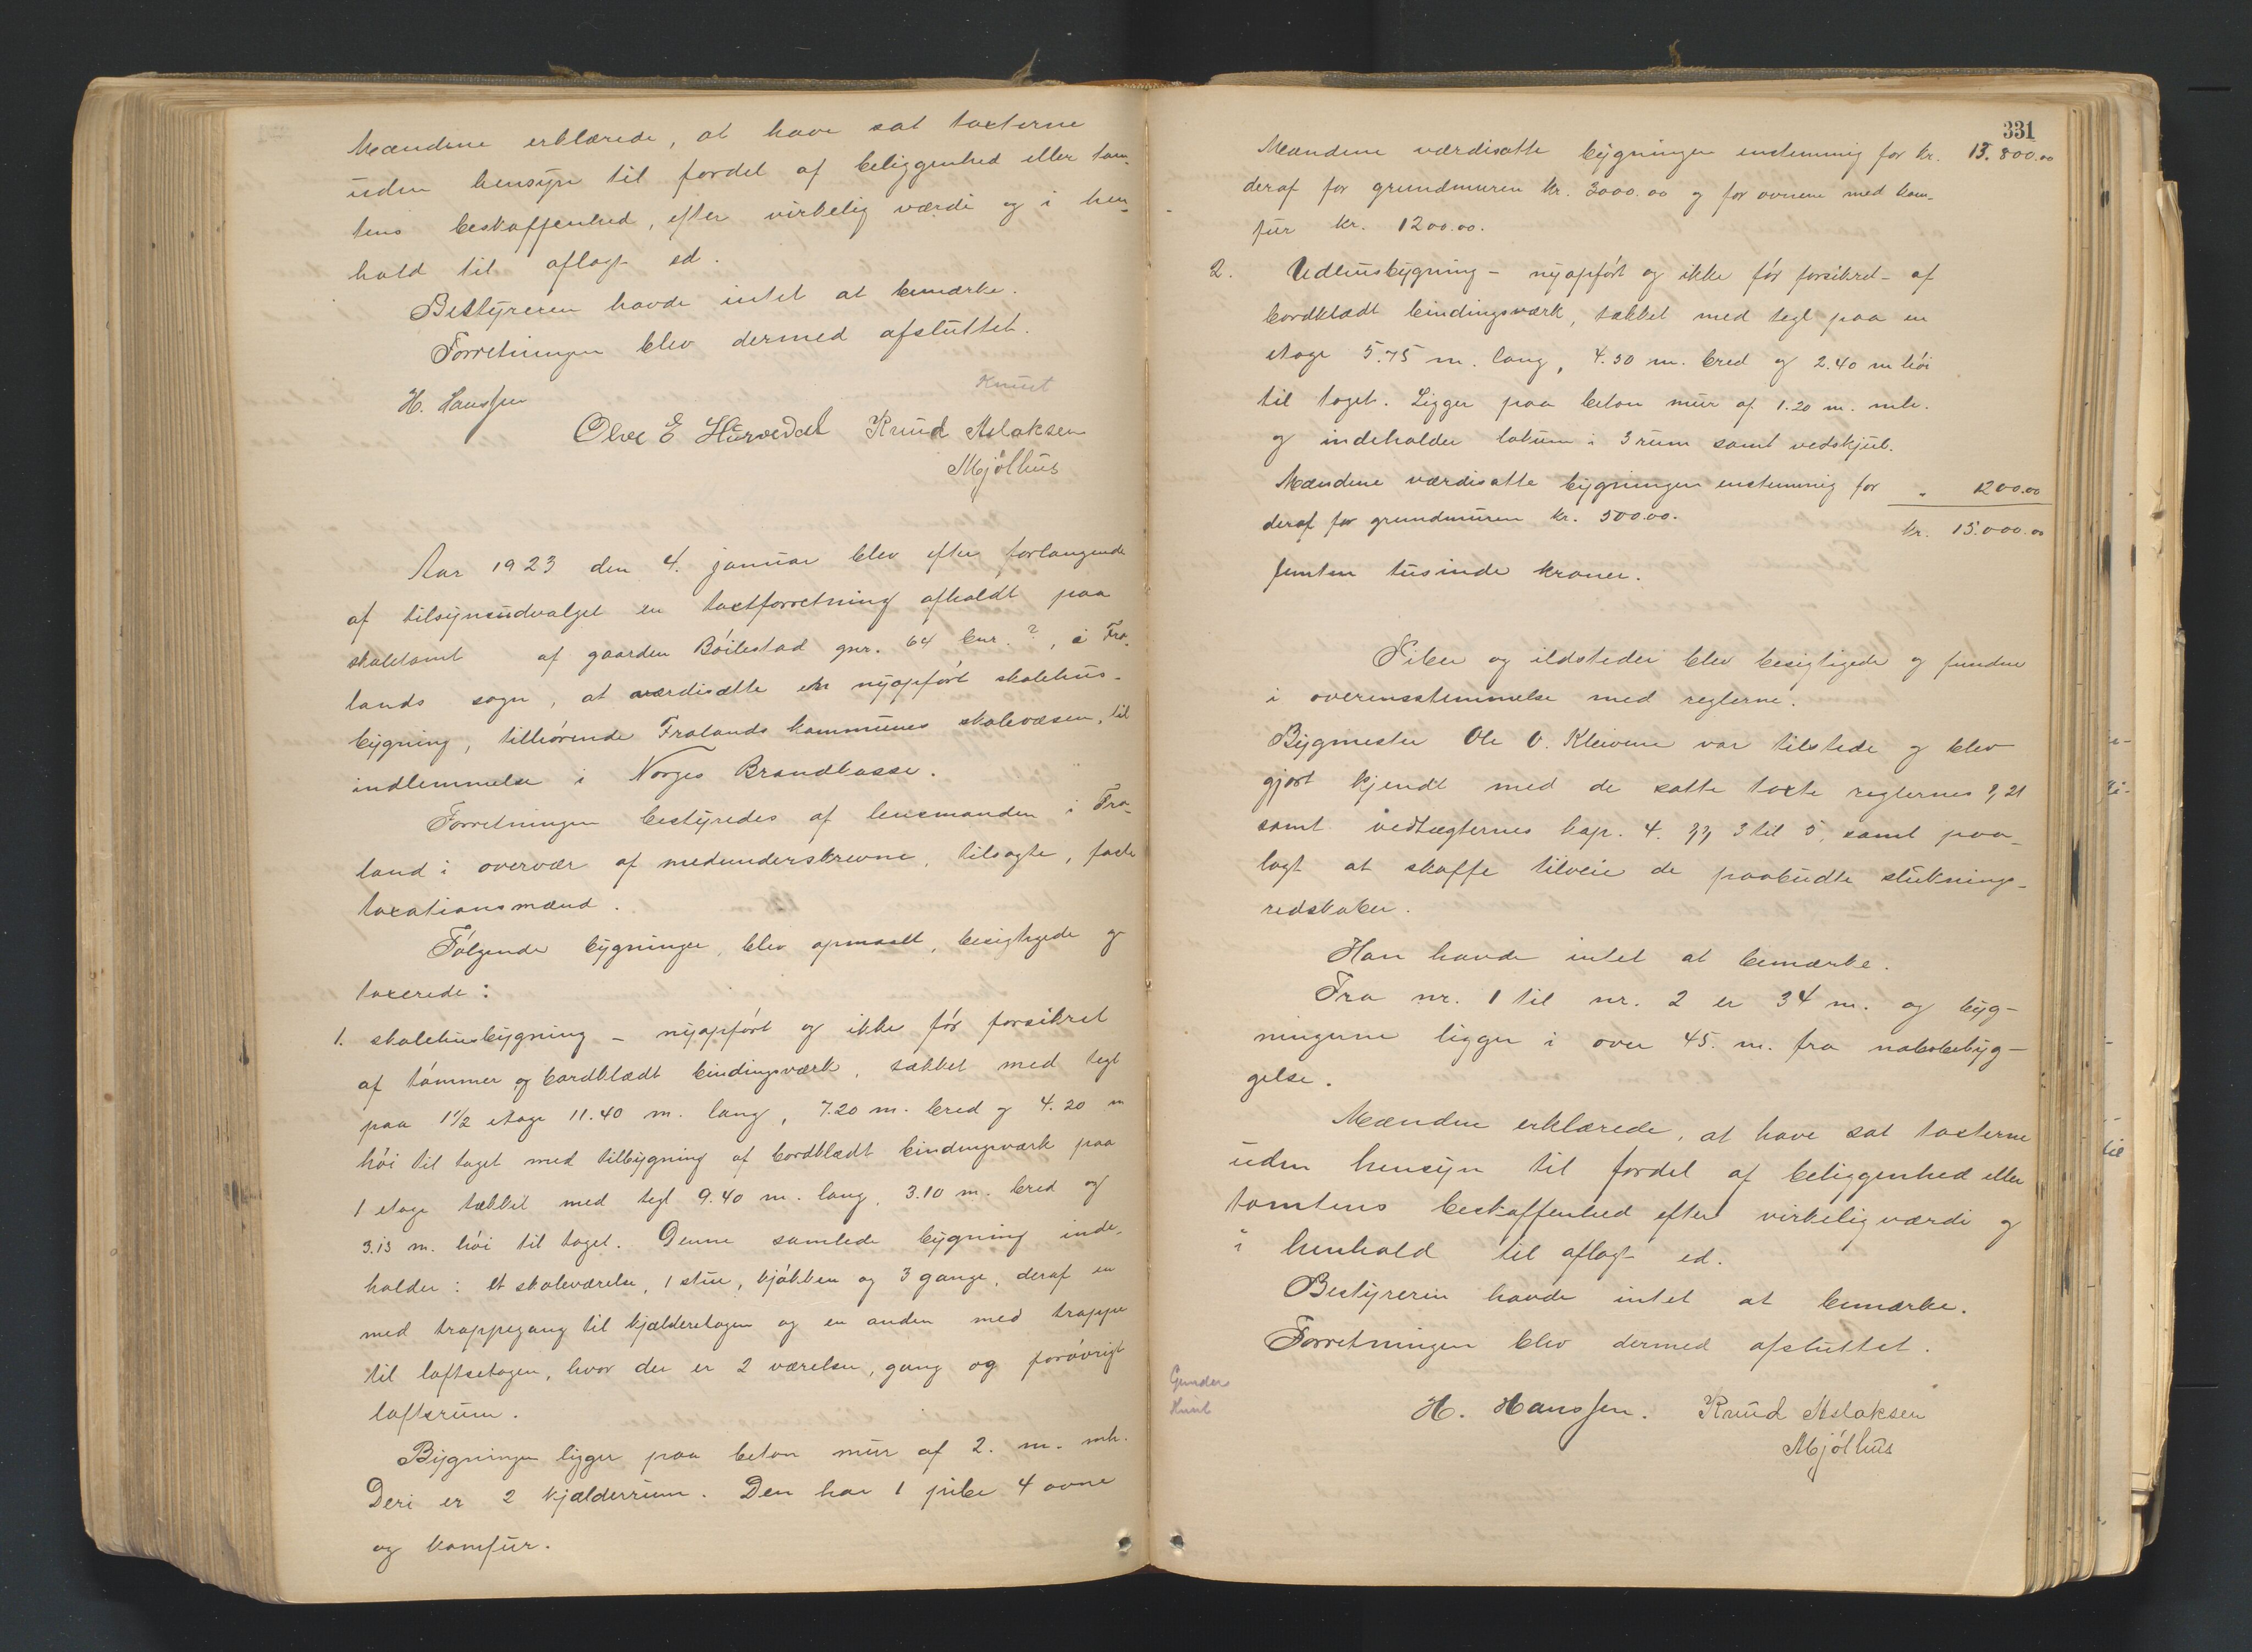 Mændene erklærede, at have sat taxterne
uden hensyn til fordel af beliggenhed eller tom-
tens beskaffenhed, efter virkelig værdi og i hen-
hold til aflagt ed.
Bestyreren havde intet at bemærke.
Forretningen blev dermed afsluttet.
H. Hanssen
Knut
Olve E Hurvedal Knud Aslaksen
Mjølhus
Aar 1923 den 4. januar blev efter forlangende
af tilsynsudvalget en taxtforretning afholdt paa
skoletomt af gaarden Bøilestad gnr. 64 bnr. ?, i Fro-
lands sogn, at værdisætte en nyopført skolehus-
bygning, tilhørende Frolands kommunes skolevæsen, til
indlemmelse i Norges Brandkasse.
Forretningen bestyredes af lensmanden i Fro-
land i overvær af medunderskrevne, tilsagte, faste
taxationsmænd.
Følgende bygninger, blev opmaalt, besigtigede og
taxerede:
1. skolehusbygning – nyopført og ikke før forsikret
af tømmer og bordklædt bindingsværk, tækket med tegl
paa 1 1/2 etage 11.40 m. lang, 7.20 m. bred og 4.20 m
høi til taget med tilbygning af bordklædt bindingsværk paa
1 etage tækket med tegl 9.40 m. lang, 3.10 m. bred og
3.13 m. høi til taget. Denne samlede bygning inde-
holder: et skoleværelse, 1 stue, kjøkken og 3 gange, deraf en
med trappegang til kjælderetagen og en anden med trappe
til loftsetagen, hvor der er 2 værelser, gang og forøvrigt
loftsrum.
Bygningen ligger paa beton mur af 2. m. mh.
Deri er 2 kjælderrum. Den har 1 pibe 4 ovne
og komfur.
331
Mændene værdisatte bygningen enstemmig for kr. 13.800.00
deraf for grundmuren kr. 3000.00 og for ovnene med kom-
fur kr. 1200.00.
2. Udhusbygning – nyopført og ikke før forsikret – af
bordklædt bindingsværk, tækket med tegl paa en
etage 5.75 m. lang, 4.30 m. bred og 2.40 m høi
til taget. Ligger paa beton mur af 1.20 m. mh.
og indeholder lokum i 3 rum samt vedskjul.
Mændene værdisatte bygningen enstemmig for " 1200.00
deraf for grundmuren kr. 500.00.
kr. 15.000.00
femten tusinde kroner.
Piber og ildsteder blev besigtigede og fundne
i overensstemmelse med reglerne.
Bygmester Ole O. Kleivene var tilstede og blev
gjort kjendt med de satte taxte reglernes § 21
samt vedtægternes kap. 4. §§ 3 til 5 samt paa-
lagt at skaffe tilveie de paabudte sluknings-
redskaber.
Han havde intet at bemærke.
Fra nr. 1 til nr. 2 er 34 m. og byg-
ningerne ligger i over 45. m. fra nabobebyg-
gelse.
Mændene erklærede, at have sat taxterne
uden hensyn til fordel af beliggenhed eller
tomtens beskaffenhed efter virkelig værdi og
i henhold til aflagt ed.
Bestyreren havde intet at bemærke.
Forretningen blev dermed afsluttet.
Gunder
Knut
H. Hanssen. Knud Aslaksen
Mjølhus